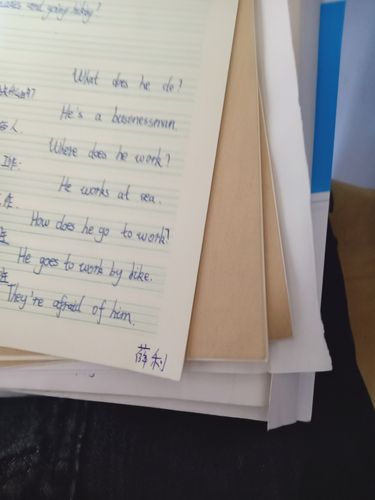 and going today?
What does he do?
He's a businessman.
人.
Where does he work?
工作.
He works at sea.
作.
How does he go to work?
He goes to work by bike.
班
They're afraid of him.
薛利